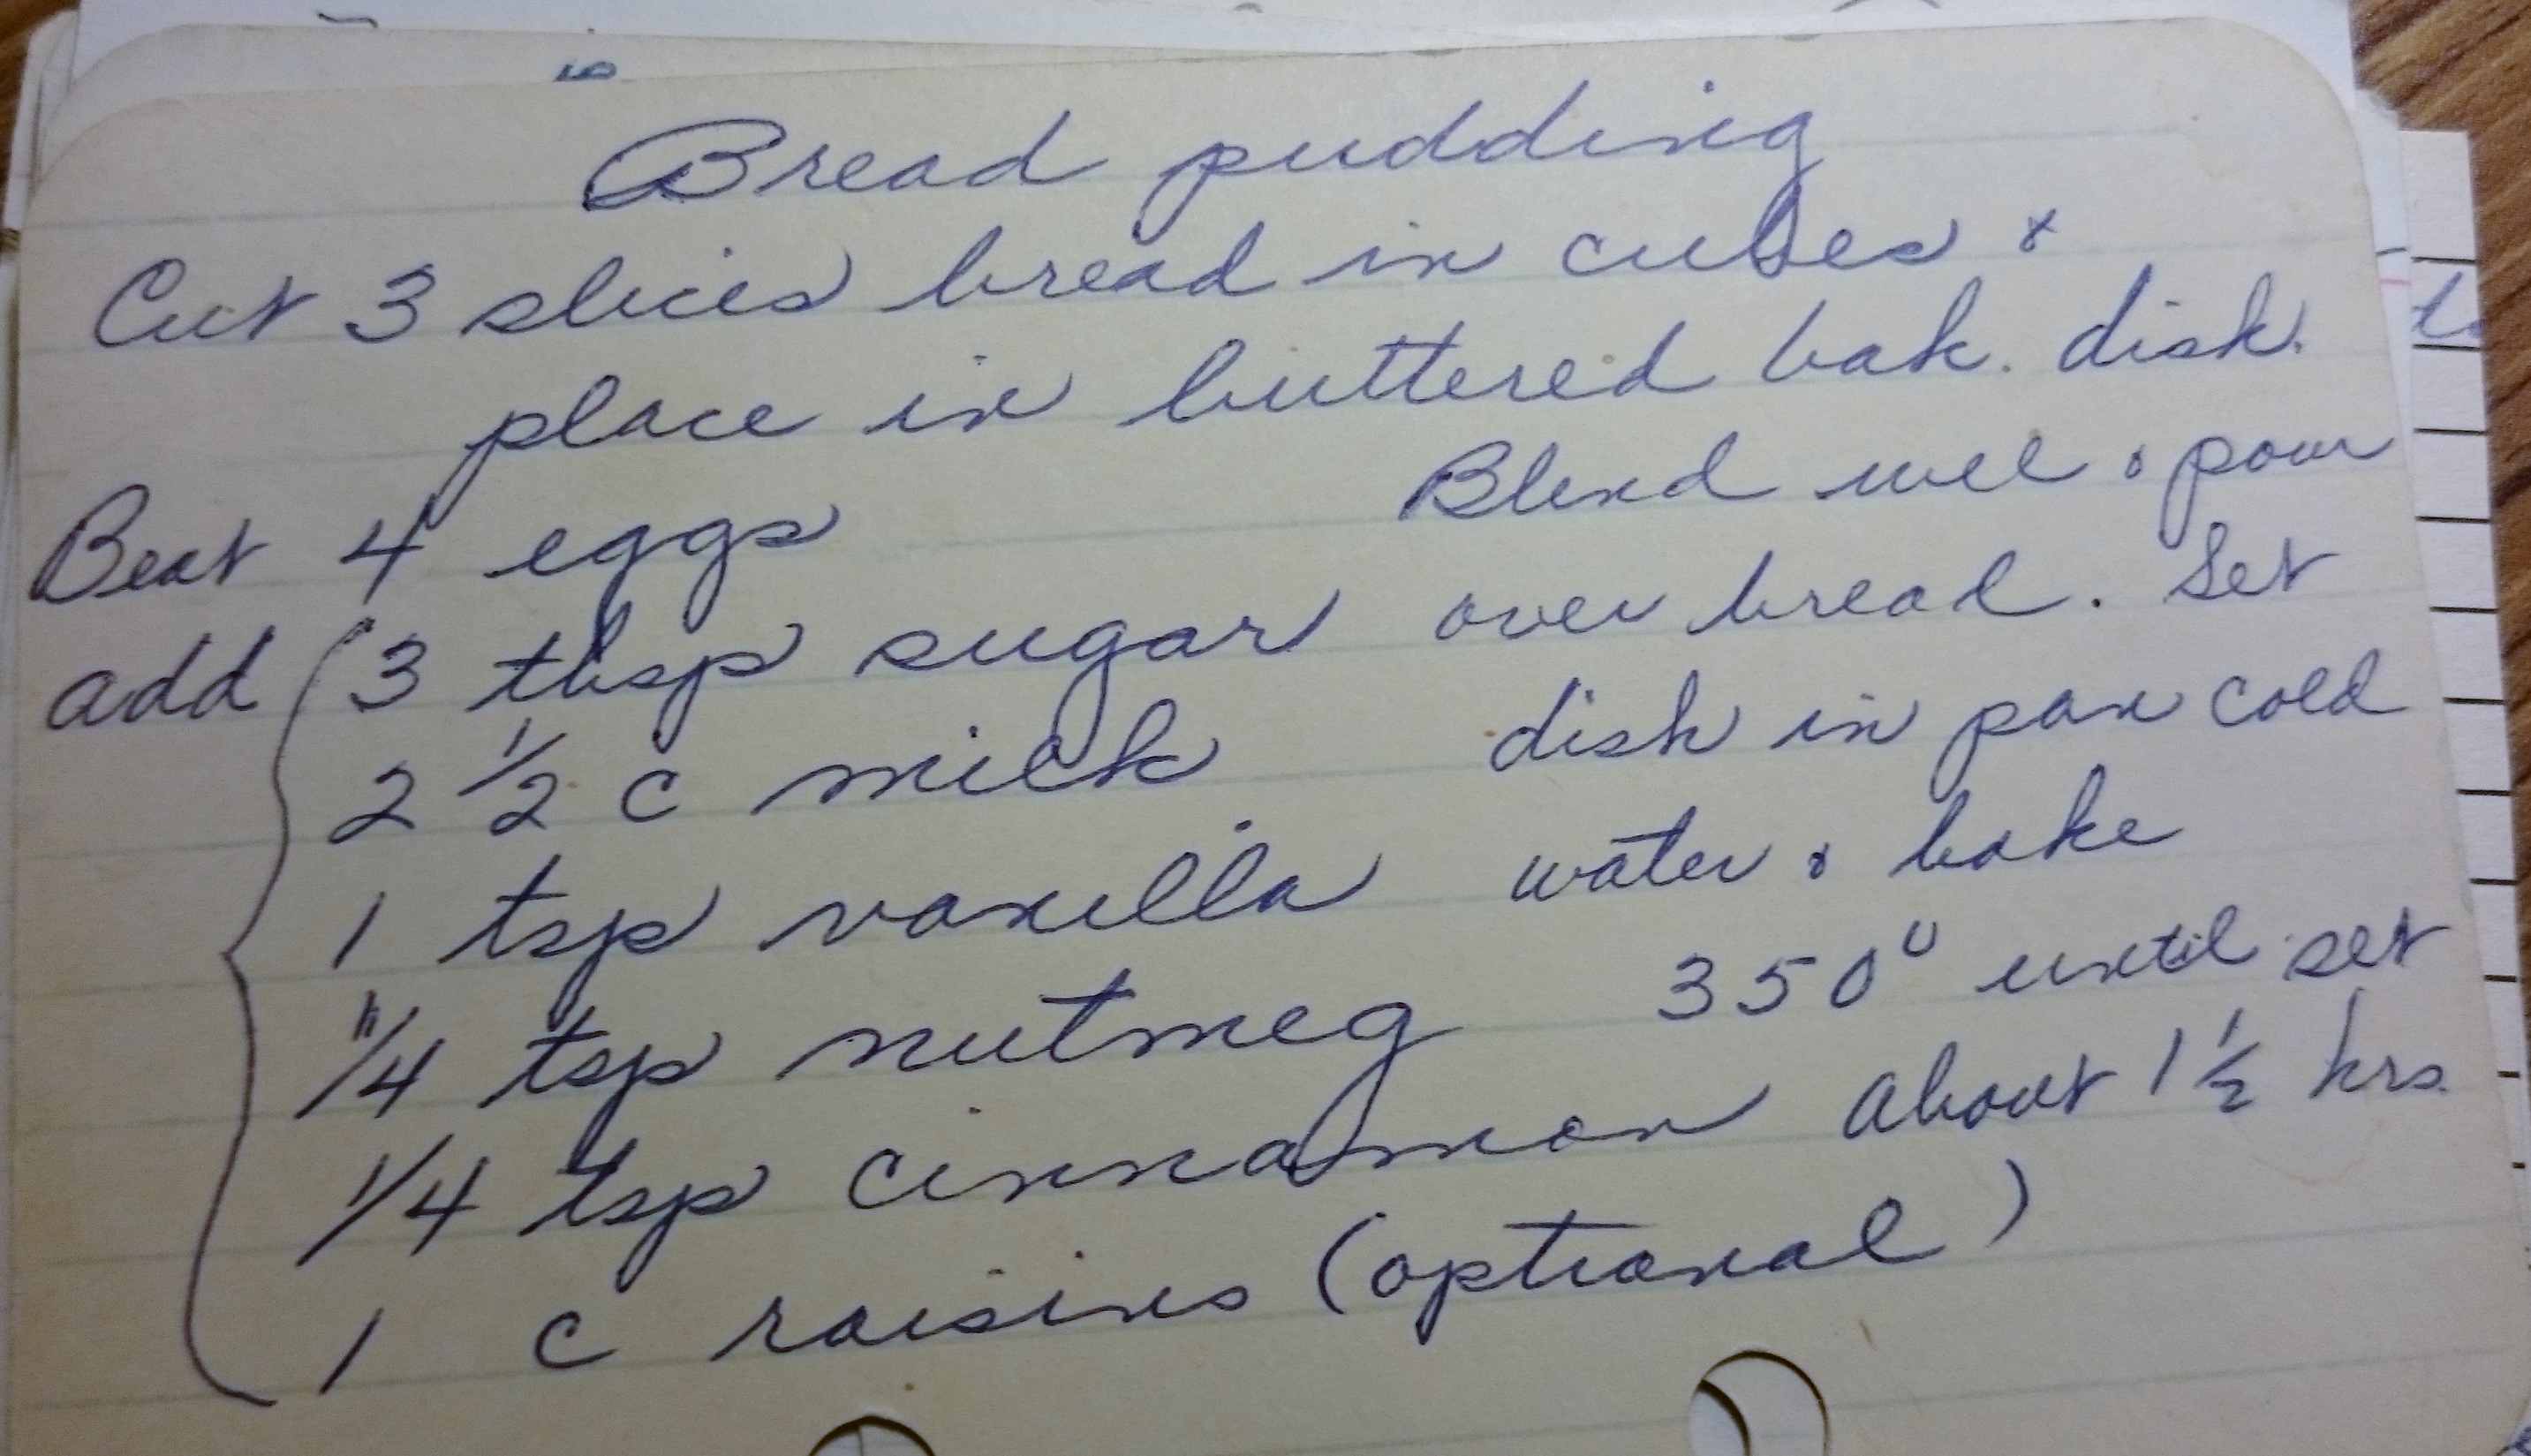 Bread pudding
Cut 3 slices bread in cubes &
place in buttered bak. dish.
Beat 4 eggs
add 3 tbsp sugar
2 1/2 c milk
1 tsp vanilla
1/4 tsp nutmeg
1/4 tsp cinnamon
1 c raisins (optional)
Blend well & pour
over bread. Set
dish in pan cold
water & bake
350° until set
about 1 1/2 hrs.